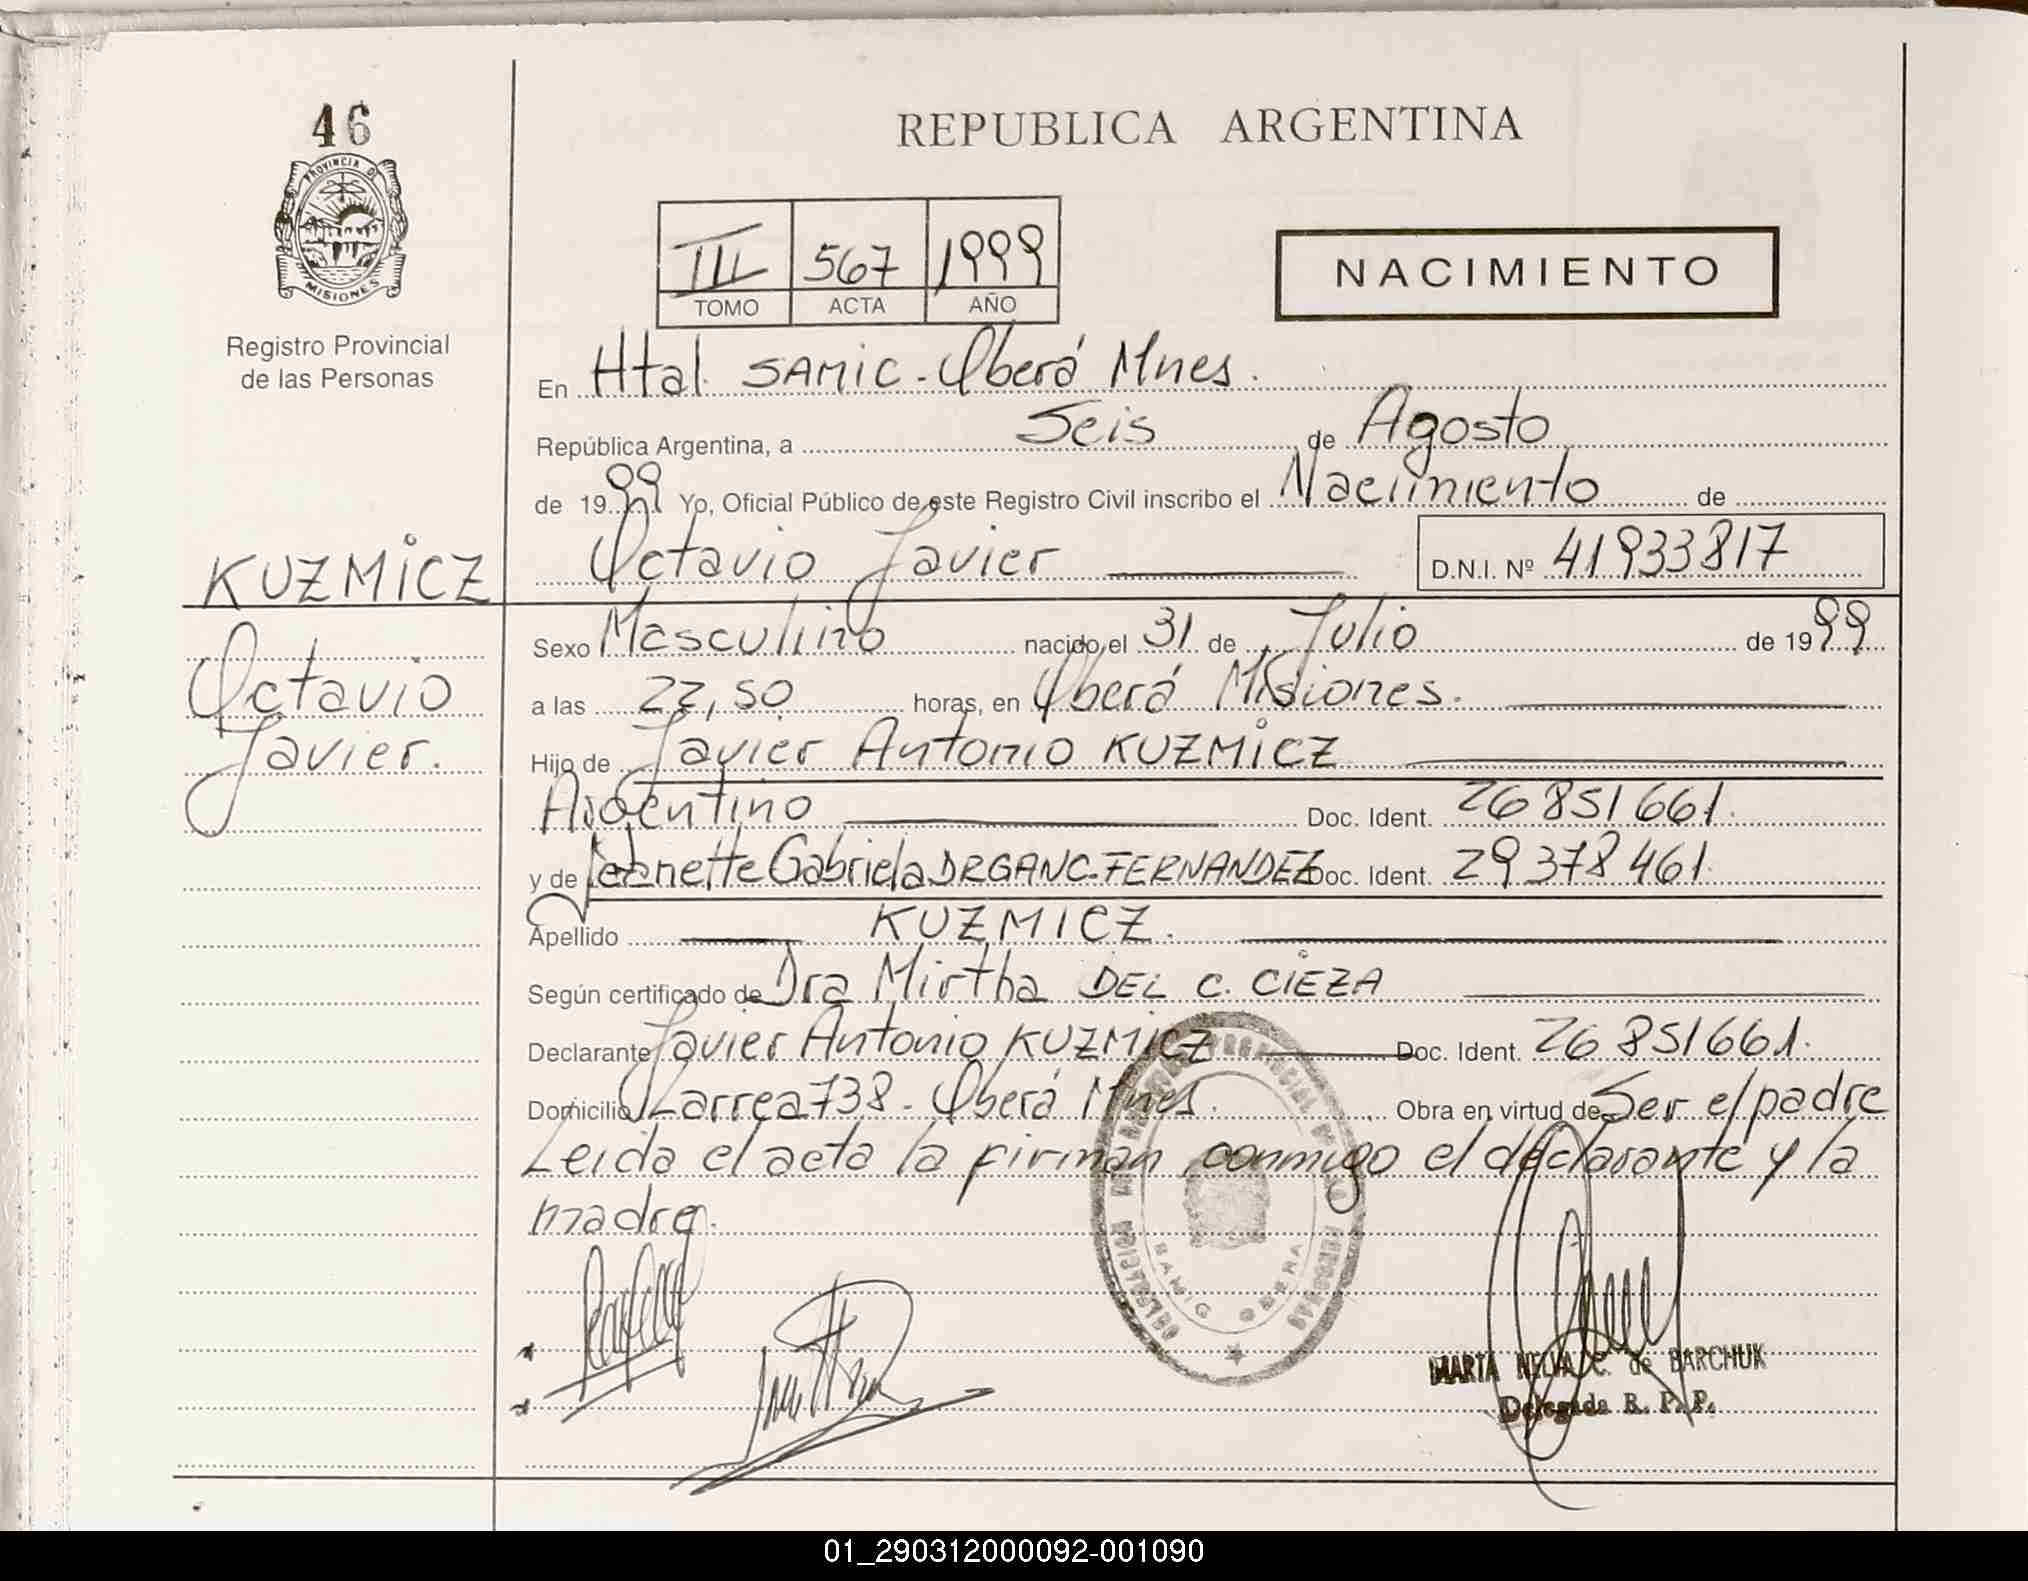 46
PROVINCIA DE
MISIONES
Registro Provincial
de las Personas
KUZMICZ
Octavio
Javier.
REPUBLICA ARGENTINA
III 567 1999
TOMO ACTA AÑO
NACIMIENTO
En Htal. SAMIC - Oberá Mnes.
República Argentina, a Seis de Agosto
de 1999 Yo, Oficial Público de este Registro Civil inscribo el Nacimiento de
Octavio Javier D.N.I. Nº 41933817
Sexo Masculino nacido el 31 de Julio de 1999
a las 22,50 horas, en Oberá Misiones.
Hijo de Javier Antonio KUZMICZ
Argentino Doc. Ident. 26 851 661.
y de Jeannette Gabriela DRGANC-FERNANDEZ Doc. Ident. 29 378 461.
Apellido KUZMICZ.
Según certificado de Dra Mirtha DEL C. CIEZA
Declarante Javier Antonio KUZMICZ Doc. Ident. 26 851 661.
Domicilio Larrea 738 - Oberá Mnes. Obra en virtud de Ser el padre
Leida el acta la firman conmigo el declarante y la
madre.
SAMIC OBERA
MARTA NELIA C. de BARCHUK
Delegada R. P. P.
01_290312000092-001090